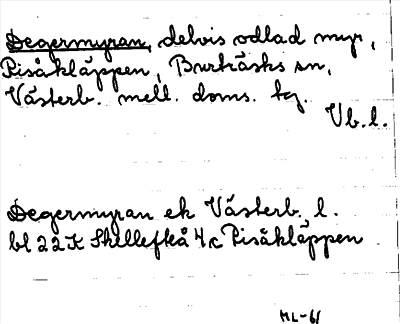 Degermyran, delvis odlad myr,
Pisåkläppen, Burträsks sn,
Västerb. mell. doms. tg.
Vb. l.
Degermyran ek Västerb., l.
bl 22K Skellefteå 4c Pisåkläppen
ML-61